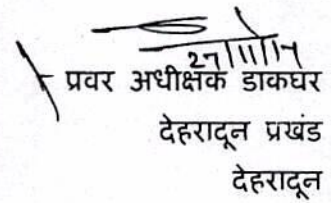 प्रवर अधीक्षक डाकघर
देहरादून प्रखंड
देहरादून